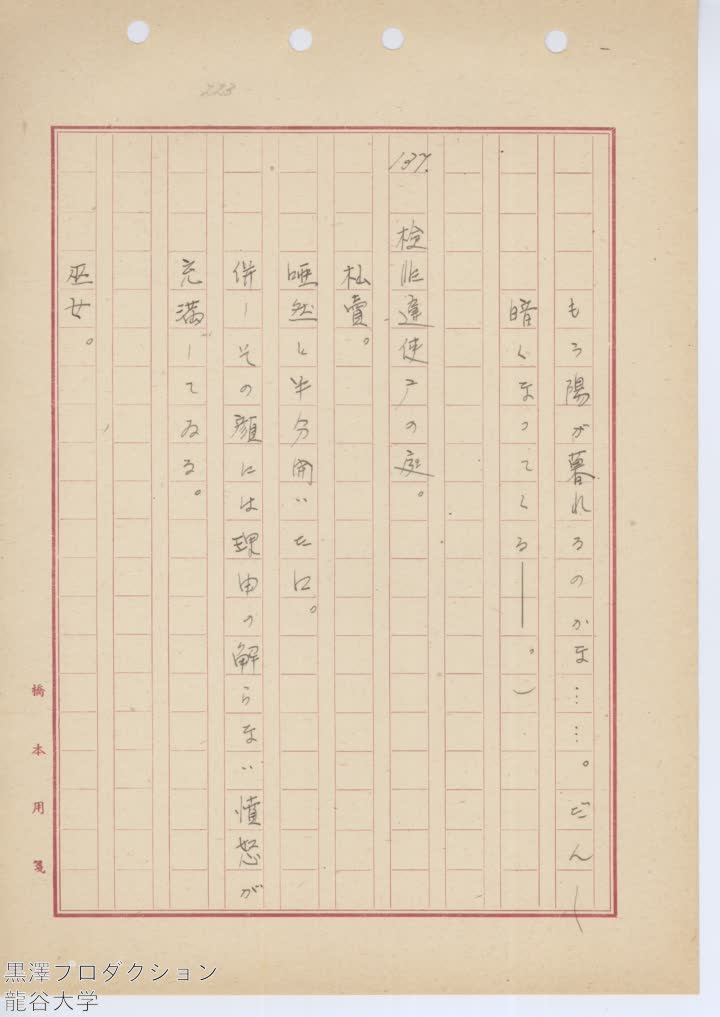 223
もう陽が暮れるのかな……。だん〱
暗くなってくる——。)
137.
検非違使庁の庭。
杣賣。
唖然と半分開いた口。
併しその顔には理由の解らない憤怒が
充満してゐる。
巫女。
橋本用箋
黒澤プロダクション
龍谷大学